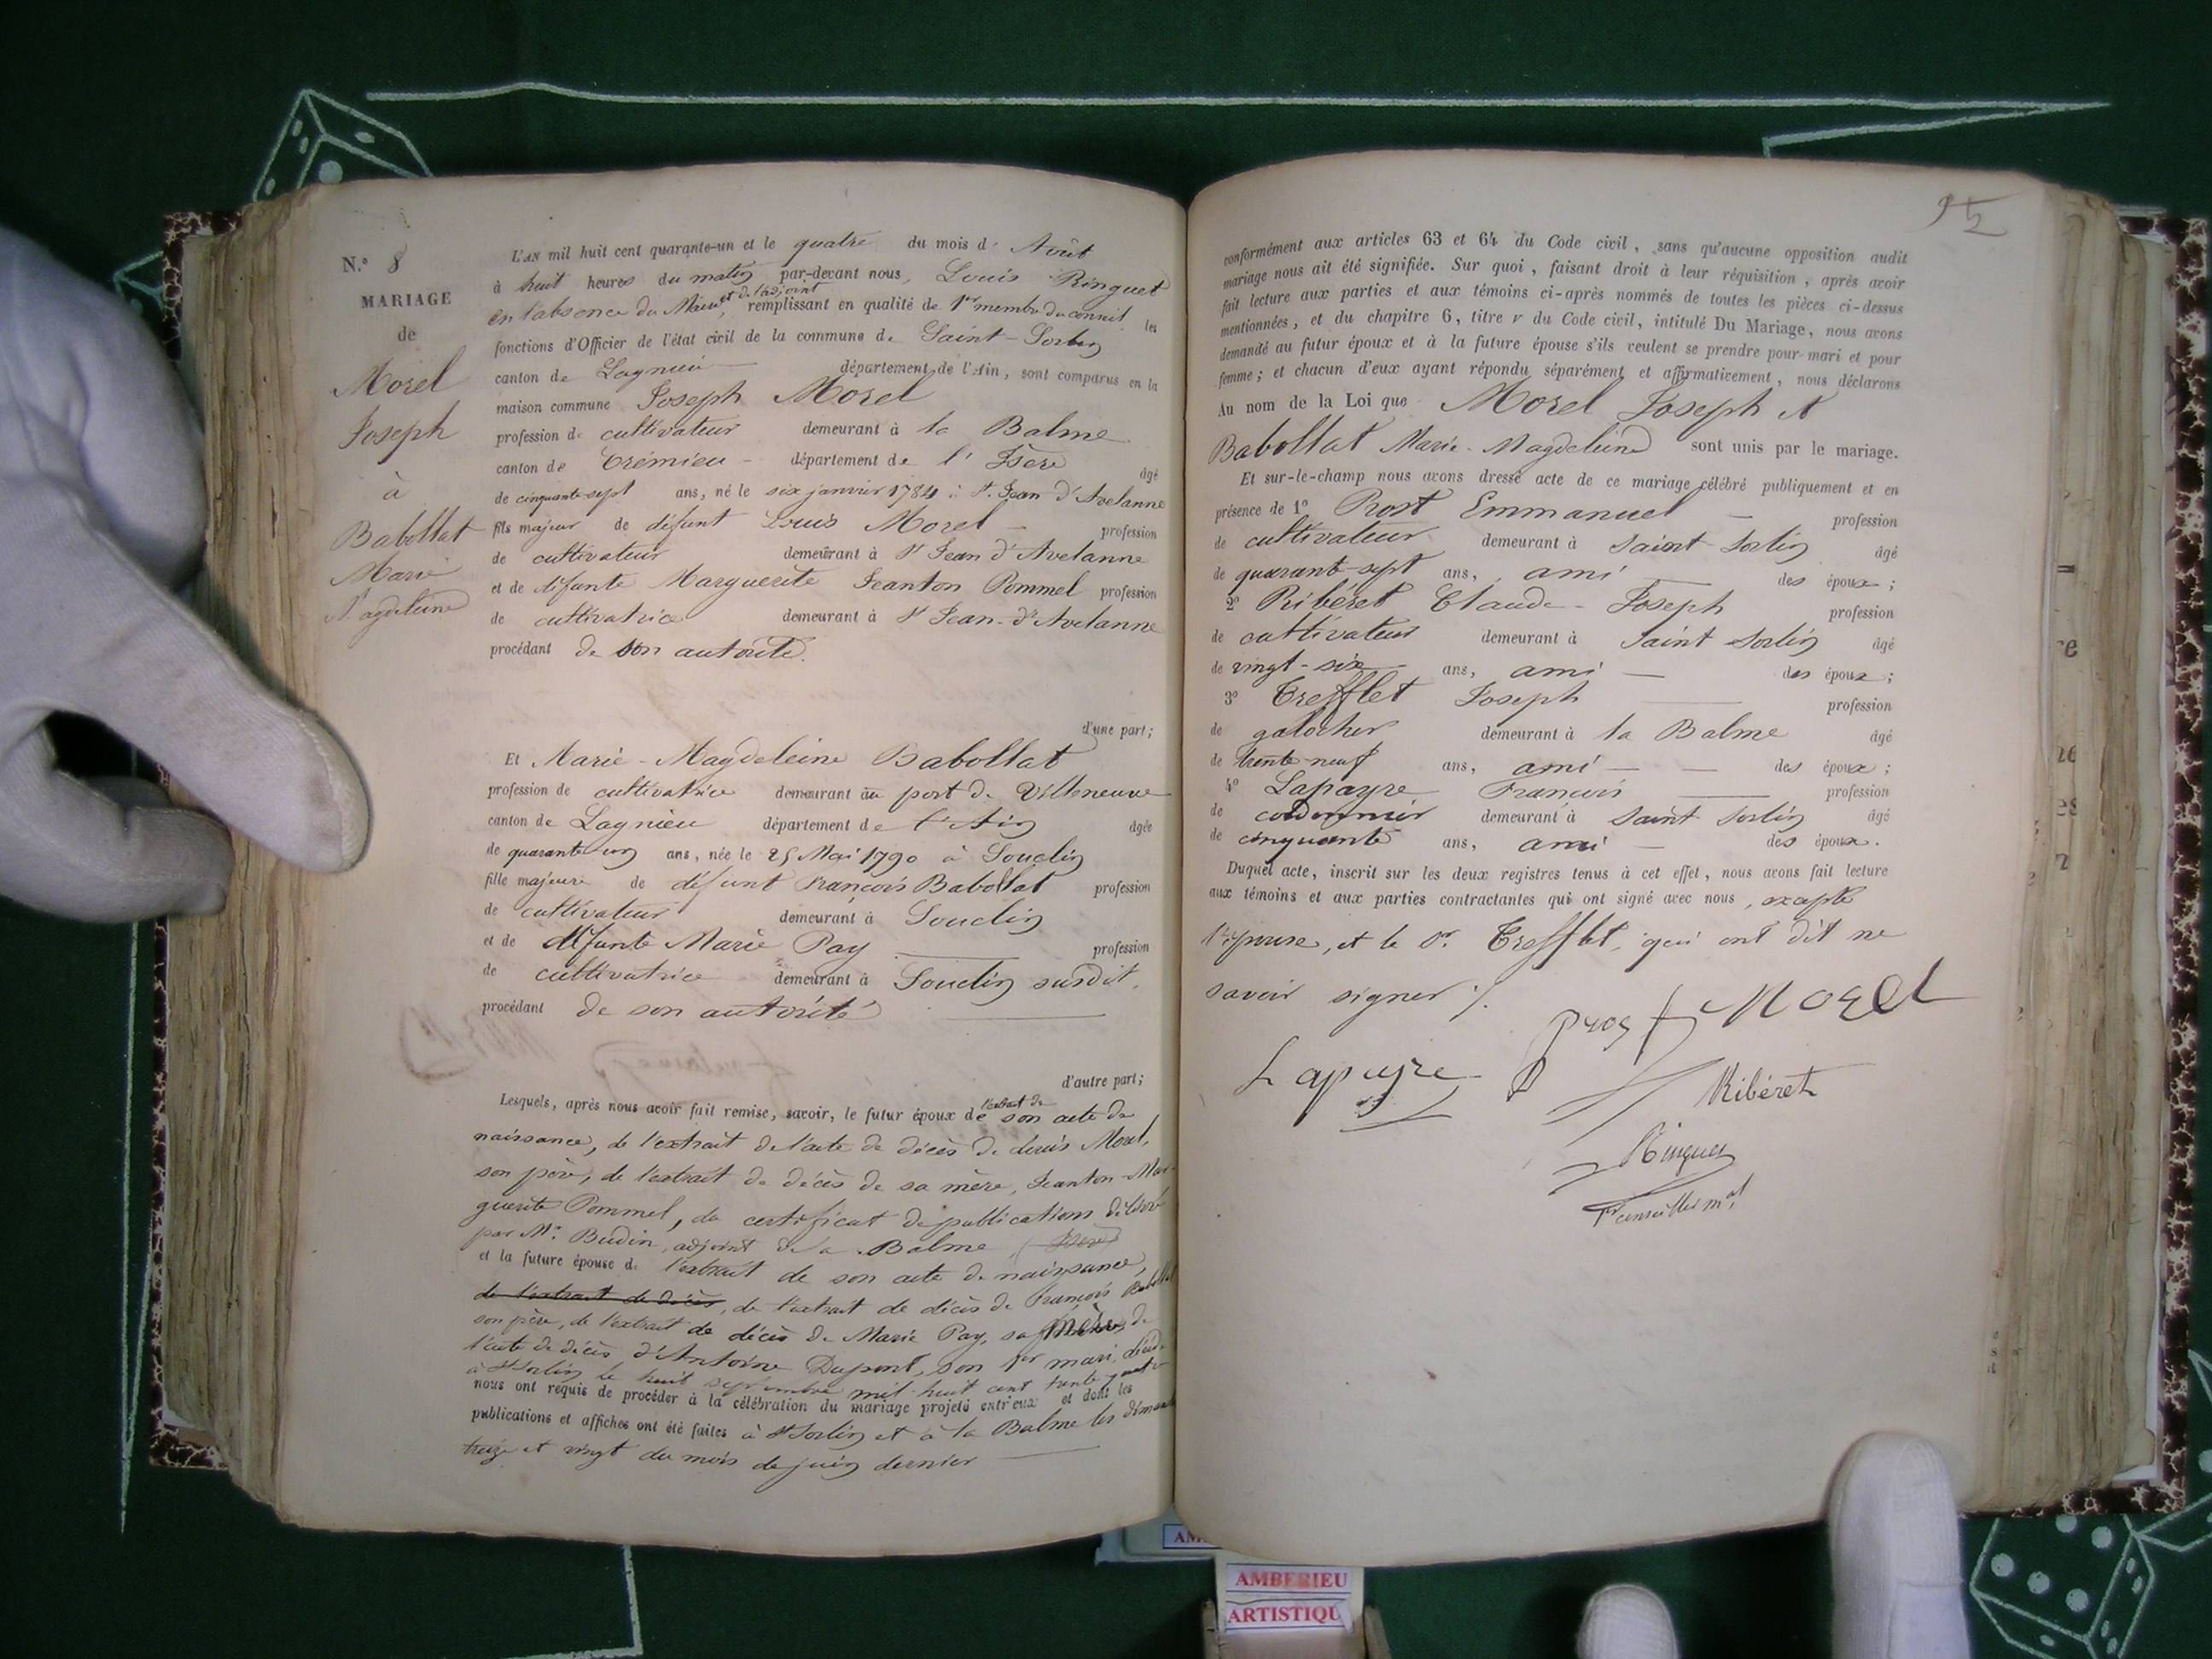 N.° 8
MARIAGE
de
Morel
Joseph
à
Babollat
Marie
Magdeleine
L'AN mil huit cent quarante-un et le quatre du mois d' Août
à huit heures du matin par-devant nous, Louis Ringuet
en l'absence du Maire et de l'adjoint, remplissant en qualité de 1er membre du conseil les
fonctions d'Officier de l'état civil de la commune de Saint-Sorlin
canton de Lagnieu département de l'Ain, sont comparus en la
maison commune Joseph Morel
profession de cultivateur demeurant à la Balme
canton de Crémieu - département de l'Isère âgé
de cinquante-sept ans, né le six janvier 1784 à St. Jean d'Avelanne
fils majeur de défunt Louis Morel - profession
de cultivateur demeurant à St Jean d'Avelanne
et de défunte Marguerite Jeanton Pommel profession
de cultivatrice demeurant à St Jean-d'Avelanne
procédant de son autorité.
d'une part;
Et Marie-Magdeleine Babollat
profession de cultivatrice demeurant au port de Villeneuve
canton de Lagnieu département de l'Ain âgée
de quarante ans, née le 25 Mai 1790 à Souclin
fille majeure de défunt François Babollat profession
de cultivateur demeurant à Souclin
et de défunte Marie Pay profession
de cultivatrice demeurant à Souclin susdit.
procédant de son autorité
d'autre part;
Lesquels, après nous avoir fait remise, savoir, le futur époux de l'extrait de son acte de
naissance, de l'extrait de l'acte de décès de Louis Morel,
son père, de l'extrait de décès de sa mère, Jeanton-Mar-
guerite Pommel, du certificat de publications délivré
par Mr. Budin, adjoint de la Balme (Isère)
et la future épouse de l'extrait de son acte de naissance,
de l'extrait de décès, de l'extrait de décès de François Babollat
son père, de l'extrait de décès de Marie Pay, sa mère, de
l'acte de décès d'Antoine Dupont, son 1er mari, décédé
à St Sorlin le huit septembre mil huit cent trente quatre
nous ont requis de procéder à la célébration du mariage projeté entr'eux et dont les
publications et affiches ont été faites à St Sorlin et à la Balme les dimanches
treize et vingt du mois de juin dernier
95
conformément aux articles 63 et 64 du Code civil, sans qu'aucune opposition audit
mariage nous ait été signifiée. Sur quoi, faisant droit à leur réquisition, après avoir
fait lecture aux parties et aux témoins ci-après nommés de toutes les pièces ci-dessus
mentionnées, et du chapitre 6, titre v du Code civil, intitulé Du Mariage, nous avons
demandé au futur époux et à la future épouse s'ils veulent se prendre pour mari et pour
femme; et chacun d'eux ayant répondu séparément et affirmativement, nous déclarons
Au nom de la Loi que Morel Joseph et
Babollat Marie-Magdeleine sont unis par le mariage.
Et sur-le-champ nous avons dressé acte de ce mariage célébré publiquement et en
présence de 1° Prost Emmanuel - profession
de cultivateur demeurant à Saint Sorlin âgé
de quarant-sept ans, ami des époux;
2° Ribéret Claude-Joseph profession
de cultivateur demeurant à Saint Sorlin âgé
de vingt-six ans, ami des époux;
3° Trefflet Joseph profession
de galocher demeurant à la Balme âgé
de trente-neuf ans, ami des époux;
4° Lapayre François profession
de cordonnier demeurant à Saint Sorlin âgé
de cinquante ans, ami des époux.
Duquel acte, inscrit sur les deux registres tenus à cet effet, nous avons fait lecture
aux témoins et aux parties contractantes qui ont signé avec nous, excepté
l'épouse, et le Sr. Trefflet, qui ont dit ne
savoir signer ./.
Prost Morel
Lapeyre
Ribéret
Ringuet
1er conseiller mal
AMBERIEU
ARTISTIQU